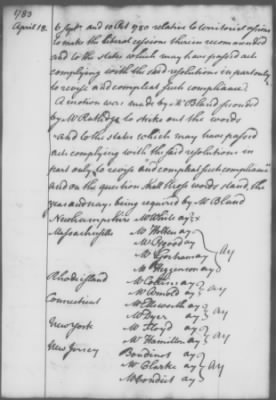 1783
April 18. 6 Sept. and 10 Oct 1780 relative to territorial cessions
to make the liberal cessions therein recommended
and to the states which may have passed
acts complying with the said resolutions in part only
to revise and compleat such compliance.
A motion was made by Mr Bland seconded
by Mr Rutledge to strike out the words
"and to the states which may have passed
acts complying with the said resolutions in
part only to revise and compleat such compliance"
and on the question shall those words stand, the
yeas and nays being required by Mr Bland
Newhampshire Mr White ay x
Massachusetts Mr Holten ay
Mr Osgood ay
Mr Gorham ay
Mr Higginson ay
ay
Rhodeisland Mr Collins ay
Mr Arnold ay
ay
Connecticut Mr Ellsworth ay
Mr Dyer ay
ay
New York Mr Floyd ay
Mr Hamilton ay
ay
New Jersey Boudinot ay
Mr Clarke ay
Mr Condict ay
ay